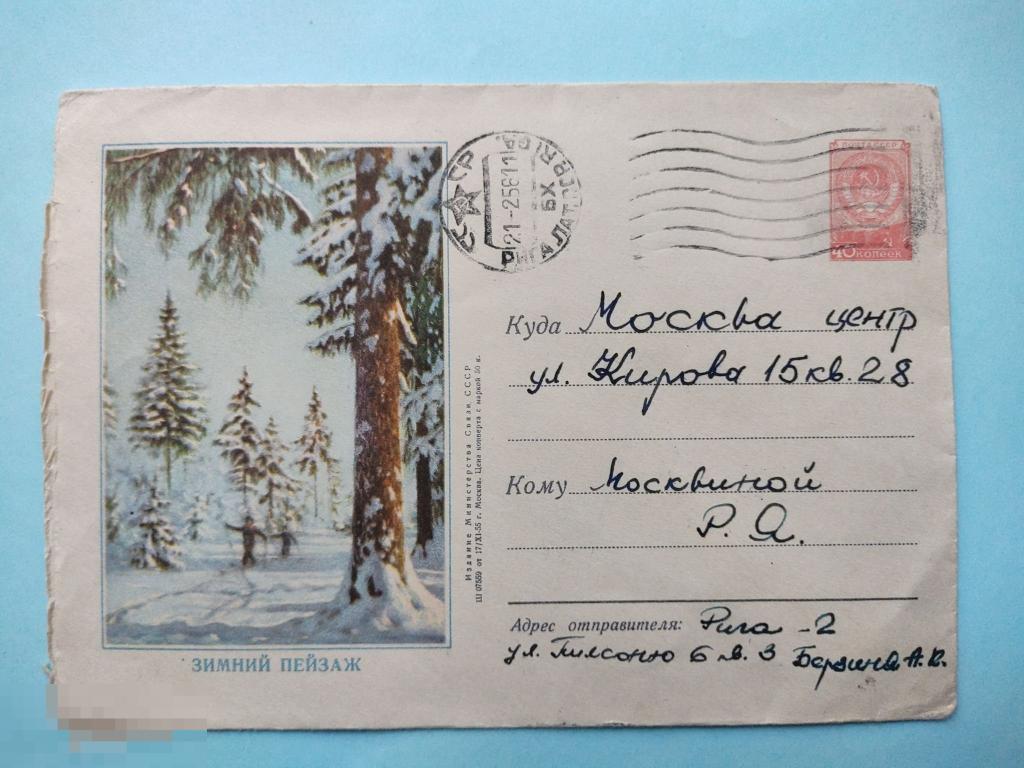 СССР
21-25811
РИГА ЛАТ.ССР RIGA
5X
ПОЧТА СССР
40 КОПЕЕК
Куда Москва центр
ул. Кирова 15 кв. 28
Кому Москвиной
Р. Я.
Адрес отправителя: Рига -2
ул. Пилсоню 6 кв. 3 Берзина А. К.
Издание Министерства Связи СССР
Ш 07559 от 17/XI-55 г. Москва. Цена конверта с маркой 50 к.
ЗИМНИЙ ПЕЙЗАЖ